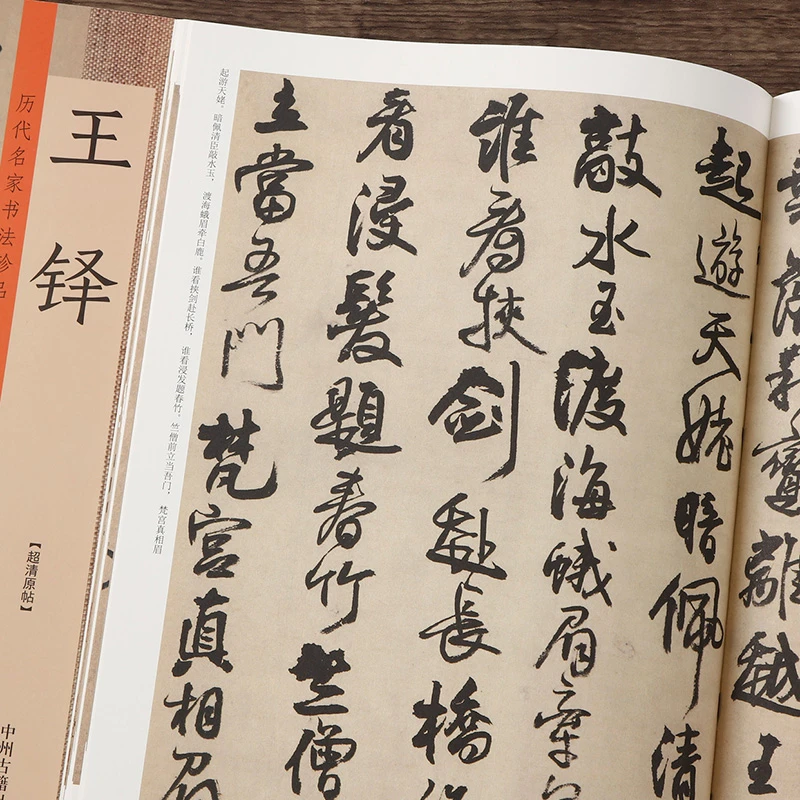 历代名家书法珍品
王铎
【超清原帖】
中州古籍
起游天姥。暗佩清臣敲水玉，渡海蛾眉牵白鹿。谁看挟剑赴长桥，谁看浸发题春竹。竺僧前立当吾门，梵宫真相眉
離越王
起遊天姥暗佩清
敲水玉渡海蛾眉牽
誰看挾劍赴長橋
看浸髮題春竹竺僧
立當吾門梵宮真相眉